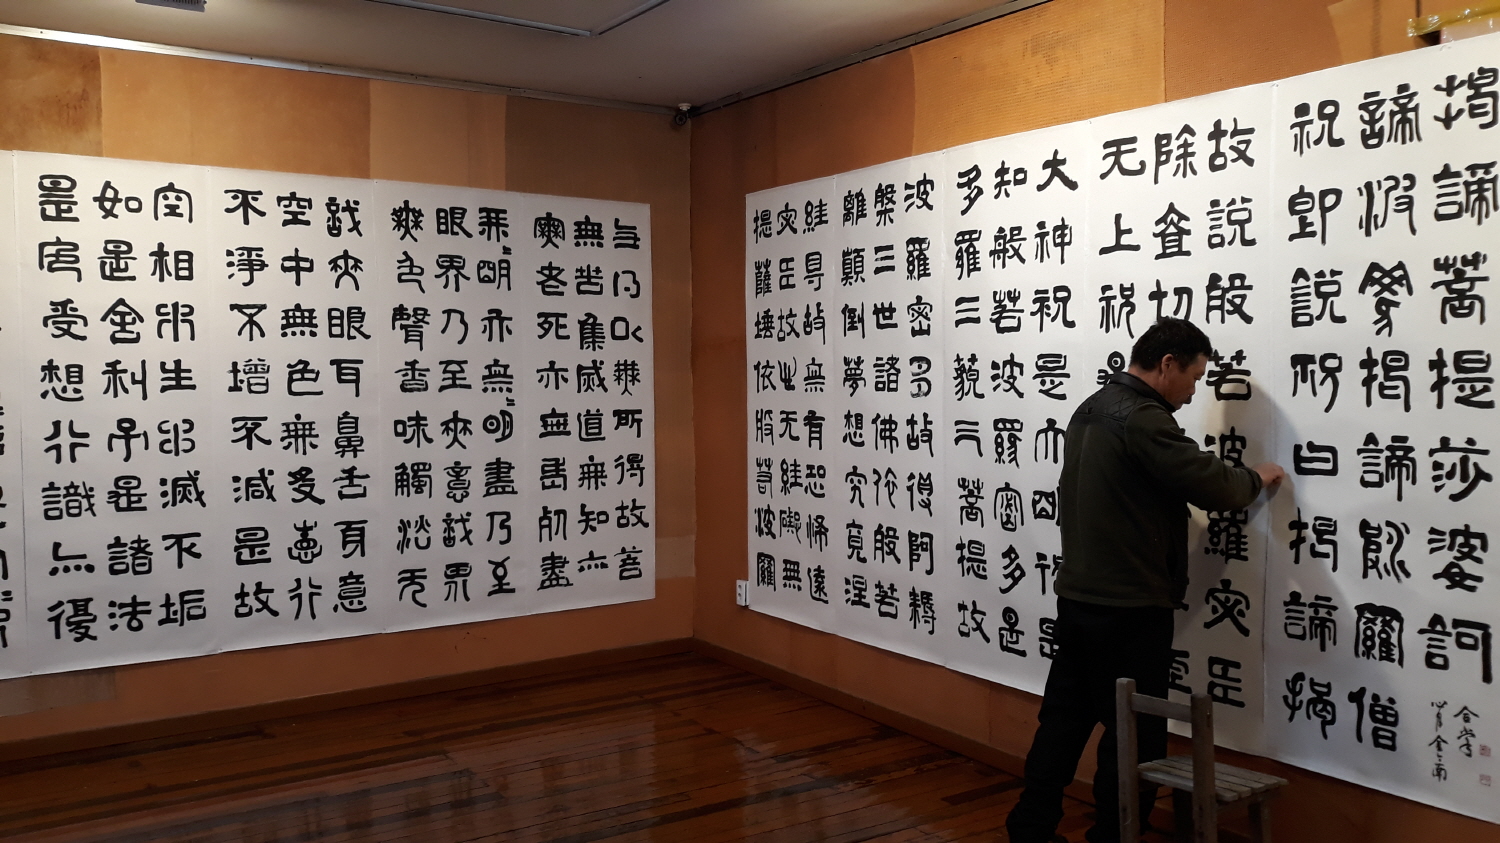 是受想行識亦復
如是舍利子是諸法
空相不生不滅不垢
不淨不增不減是故
空中無色無受想行
識无眼耳鼻舌身意
無色聲香味觸法无
眼界乃至无意識界
無明亦無明盡乃至
無老死亦無老死盡
無苦集滅道無知亦
無所得故菩
提薩埵依般若波羅
蜜多故心无罣礙無
罣导故無有恐怖遠
離顛倒夢想究竟涅
槃三世諸佛依般若
波羅密多故得阿耨
多羅三藐三菩提故
知般若波羅密多是
大神祝是大明祝是
无上祝是
除一切
故說般若波羅蜜多
祝即說祝曰揭諦揭
諦波羅揭諦波羅僧
揭諦菩提莎婆訶
合掌